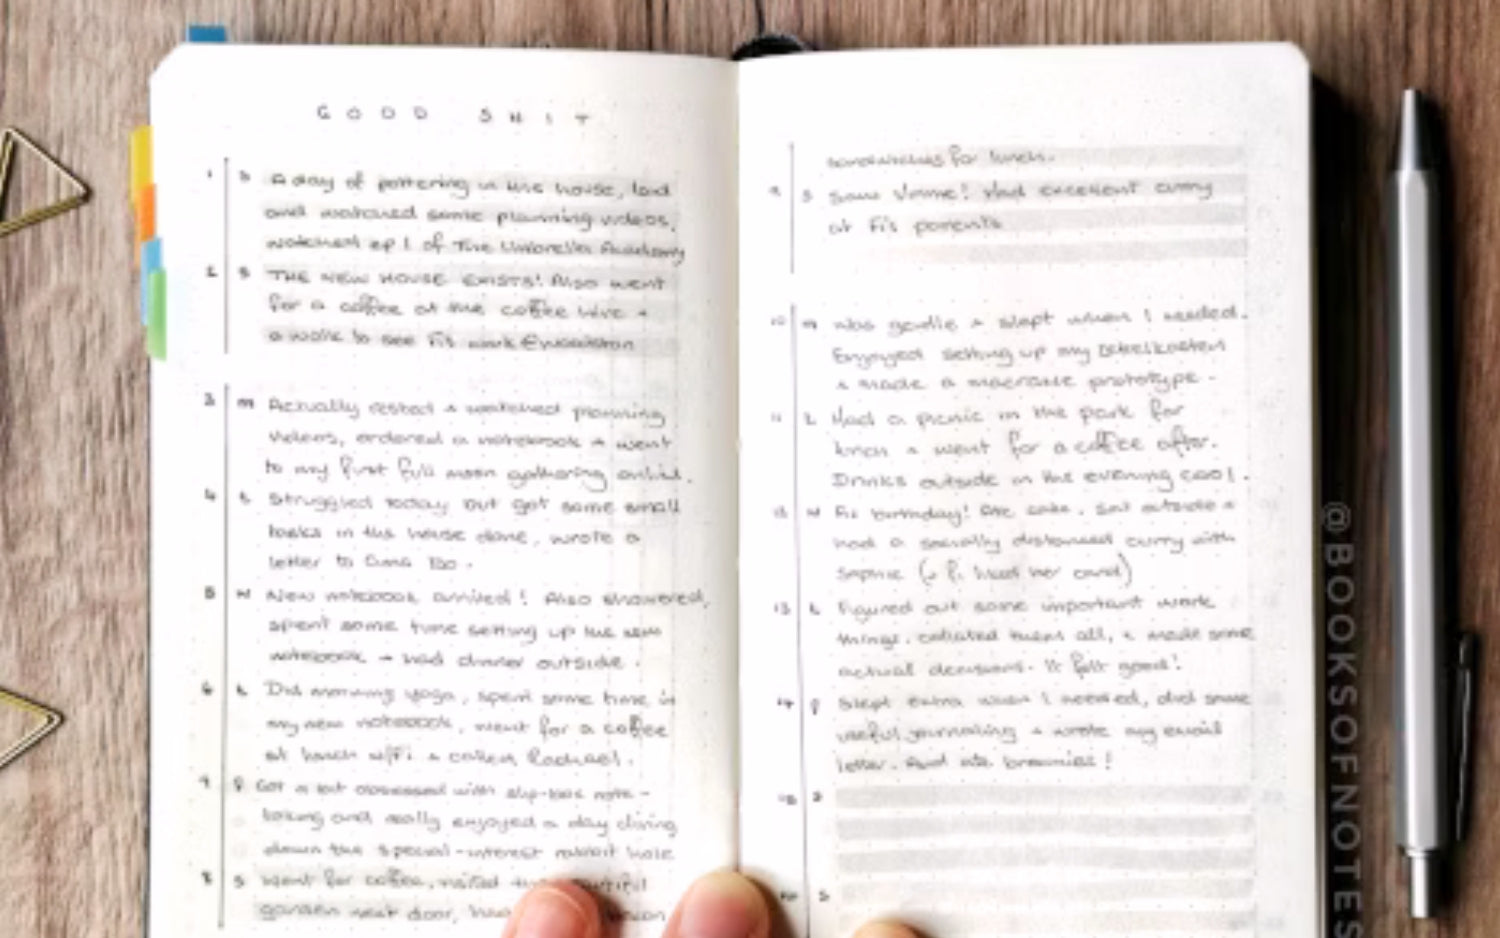 GOOD SHIT
1 S A day of pottering in the house, laid
and watched some planning videos,
watched ep 1 of The Umbrella Academy
2 S THE NEW HOUSE EXISTS! Also went
for a coffee at the coffee hive +
a walk to see Fi's work @
3 M Actually rested + watched planning
videos, ordered a notebook + went
to my first full moon gathering online.
4 T Struggled today but got some small
tasks in the house done, wrote a
letter to
5 W New notebook arrived! Also showered,
spent some time setting up the new
notebook + had dinner outside.
6 T Did morning yoga, spent some time in
my new notebook, went for a coffee
at lunch w/Fi + called Rachael.
7 F Got a bit obsessed with slip-box note-
taking and really enjoyed a day diving
down the special-interest rabbit hole
8 S Went for coffee, visited
garden next door, had
sandwiches for lunch.
9 S Saw Vinnie! Had excellent curry
at Fi's parents
10 M Was gentle + slept when I needed.
Enjoyed setting up my zettelkasten
+ made a macramé prototype.
11 T Had a picnic in the park for
lunch + went for a coffee after.
Drinks outside in the evening cool.
12 W Fi's birthday! Ate cake, sat outside +
had a socially distanced curry with
Sophie (+ Fi liked her card)
13 T Figured out some important work
things, collated them all, + made some
actual decisions. It felt good!
14 F Slept extra when I needed, did some
useful journaling + wrote my email
letter. And ate brownies!
15 S
16 S
@BOOKSOFNOTES